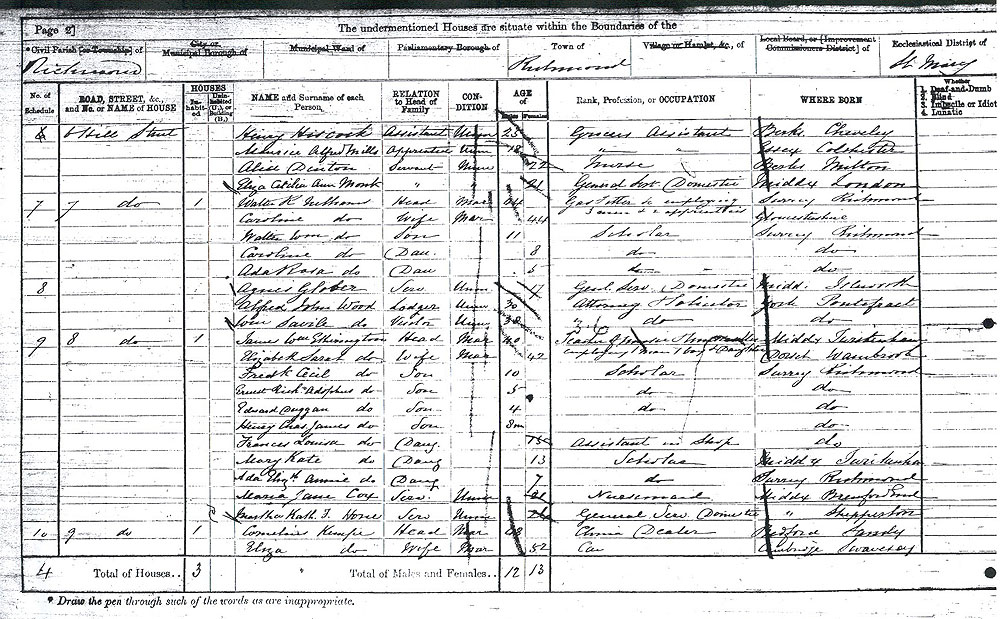 Page 2] The undermentioned Houses are situate within the Boundaries of the
* Civil Parish [or Township] of City or Municipal Borough of Municipal Ward of Parliamentary Borough of Town of Village or Hamlet, &c., of Local Board, or [Improvement Commissioners District] of Ecclesiastical District of
Richmond Richmond St. Mary
No. of Schedule ROAD, STREET, &c., and No. or NAME of HOUSE HOUSES Inhabited Uninhabited (U.), or Building (B.) NAME and Surname of each Person RELATION to Head of Family CONDITION AGE of Males Females Rank, Profession, or OCCUPATION WHERE BORN Whether 1. Deaf-and-Dumb 2. Blind 3. Imbecile or Idiot 4. Lunatic
6 Hill Street Henry Hiscock Assistant Unm 25 Grocers Assistant Berks
Alfred Mills Apprentice Unm 18 " " Essex Colchester
Alice Denton Servant Unm 22 Nurse Berks Milton
Eliza Cecilia Ann Monk " 21 General Serv Domestic Middx London
7 7 do 1 Walter R Head Mar 44 Gas Fitter &c employing 3 men & 2 apprentices Surrey Richmond
Caroline do Wife Mar 44 Gloucestershire
Walter Wm do Son 11 Scholar Surrey Richmond
Caroline do Dau 8 do do
Ada Rosa do Dau 5 do do
8 Agnes Glober Ser Unm 17 Genl. Serv. Domestic Midd. Isleworth
Alfred John Wood Lodger Unm Attorney & Solicitor York Pontefract
Wm Savile do Visitor Unm 38 " do do
9 8 do 1 James Wm Head Mar 40 Middx Twickenham
Elizabeth Sarah do Wife Mar 42 employing 1 man 1 boy & Daughter Dorset Wambrook
Fredk Cecil do Son 10 Scholar Surrey Richmond
Ernest Richd Adolphus do Son 5 do do
Edward Duggan do Son 4 do do
Henry Chas James do Son 8m do
Frances Louisa do Daug 15 Assistant in Shop do
Mary Kate do Daug 13 Scholar Middx Twickenham
Ada Elizth Annie do Daug 7 do Surrey Richmond
Maria Jane Cox Serv. Unm 21 Nursemaid Middx Brentford End
Martha Kath. F. Hone Serv Unm General Serv. Domestic " Shepperton
10 9 do 1 Cornelius Kempe Head Mar China Dealer Bedford Sandy
Eliza do Wife Mar 52 Cambridge Swavesey
4 Total of Houses.. 3 Total of Males and Females.. 12 13
* Draw the pen through such of the words as are inappropriate.